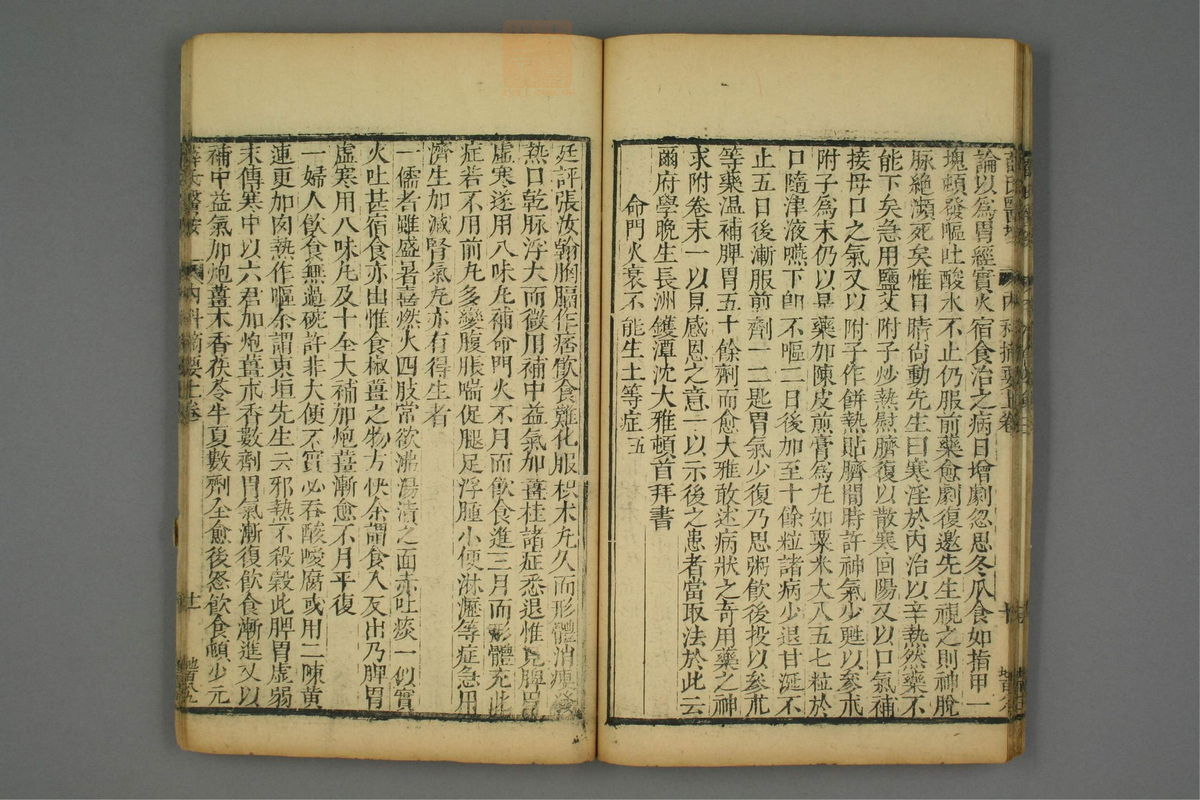 論以爲胃經實火宿食治之病日增劇忽思冬瓜食如指甲一
塊頓發嘔吐酸水不止仍服前藥愈劇復邀先生視之則神脫
脉絶瀕死矣惟目睛尙動先生曰寒淫於內治以辛熱然藥不
能下矣急用鹽艾附子炒熱熨臍復以散寒回陽又以口氣補
接母口之氣又以附子作餅熱貼臍間時許神氣少甦以參朮
附子爲末仍以是藥加陳皮煎膏爲丸如粟米大入五七粒於
口隨津液嚥下卽不嘔二日後加至十餘粒諸病少退甘涎不
止五日後漸服前劑一二匙胃氣少復乃思粥飮後投以參朮
等藥温補脾胃五十餘劑而愈大雅敢述病狀之奇用藥之神
求附卷末一以見感恩之意一以示後之患者當取法於此云
爾府學晩生長洲鑊潭沈大雅頓首拜書
命門火衰不能生土等症 五
廷評張汝翰胸膈作痞飮食難化服枳朮丸久而形體消瘦發
熱口乾脉浮大而微用補中益氣加薑桂諸症悉退惟見脾胃
虛寒遂用八味丸補命門火不月而飮食進三月而形體充此
症若不用前丸多變腹脹喘促腿足浮腫小便淋瀝等症急用
濟生加減腎氣丸亦有得生者
一儒者雖盛暑喜燃火四肢常欲沸湯漬之面赤吐痰一似實
火吐甚宿食亦出惟食椒薑之物方快余謂食入反出乃脾胃
虛寒用八味丸及十全大補加炮薑漸愈不月平復
一婦人飮食無過碗許非大便不實必吞酸噯腐或用二陳黃
連更加內熱作嘔余謂東垣先生云邪熱不殺穀此脾胃虛弱
末傳寒中以六君加炮薑木香數劑胃氣漸復飮食漸進又以
補中益氣加炮薑木香茯苓半夏數劑全愈後怒飮食頓少元
薛氏醫按 內科摘要上卷 十一